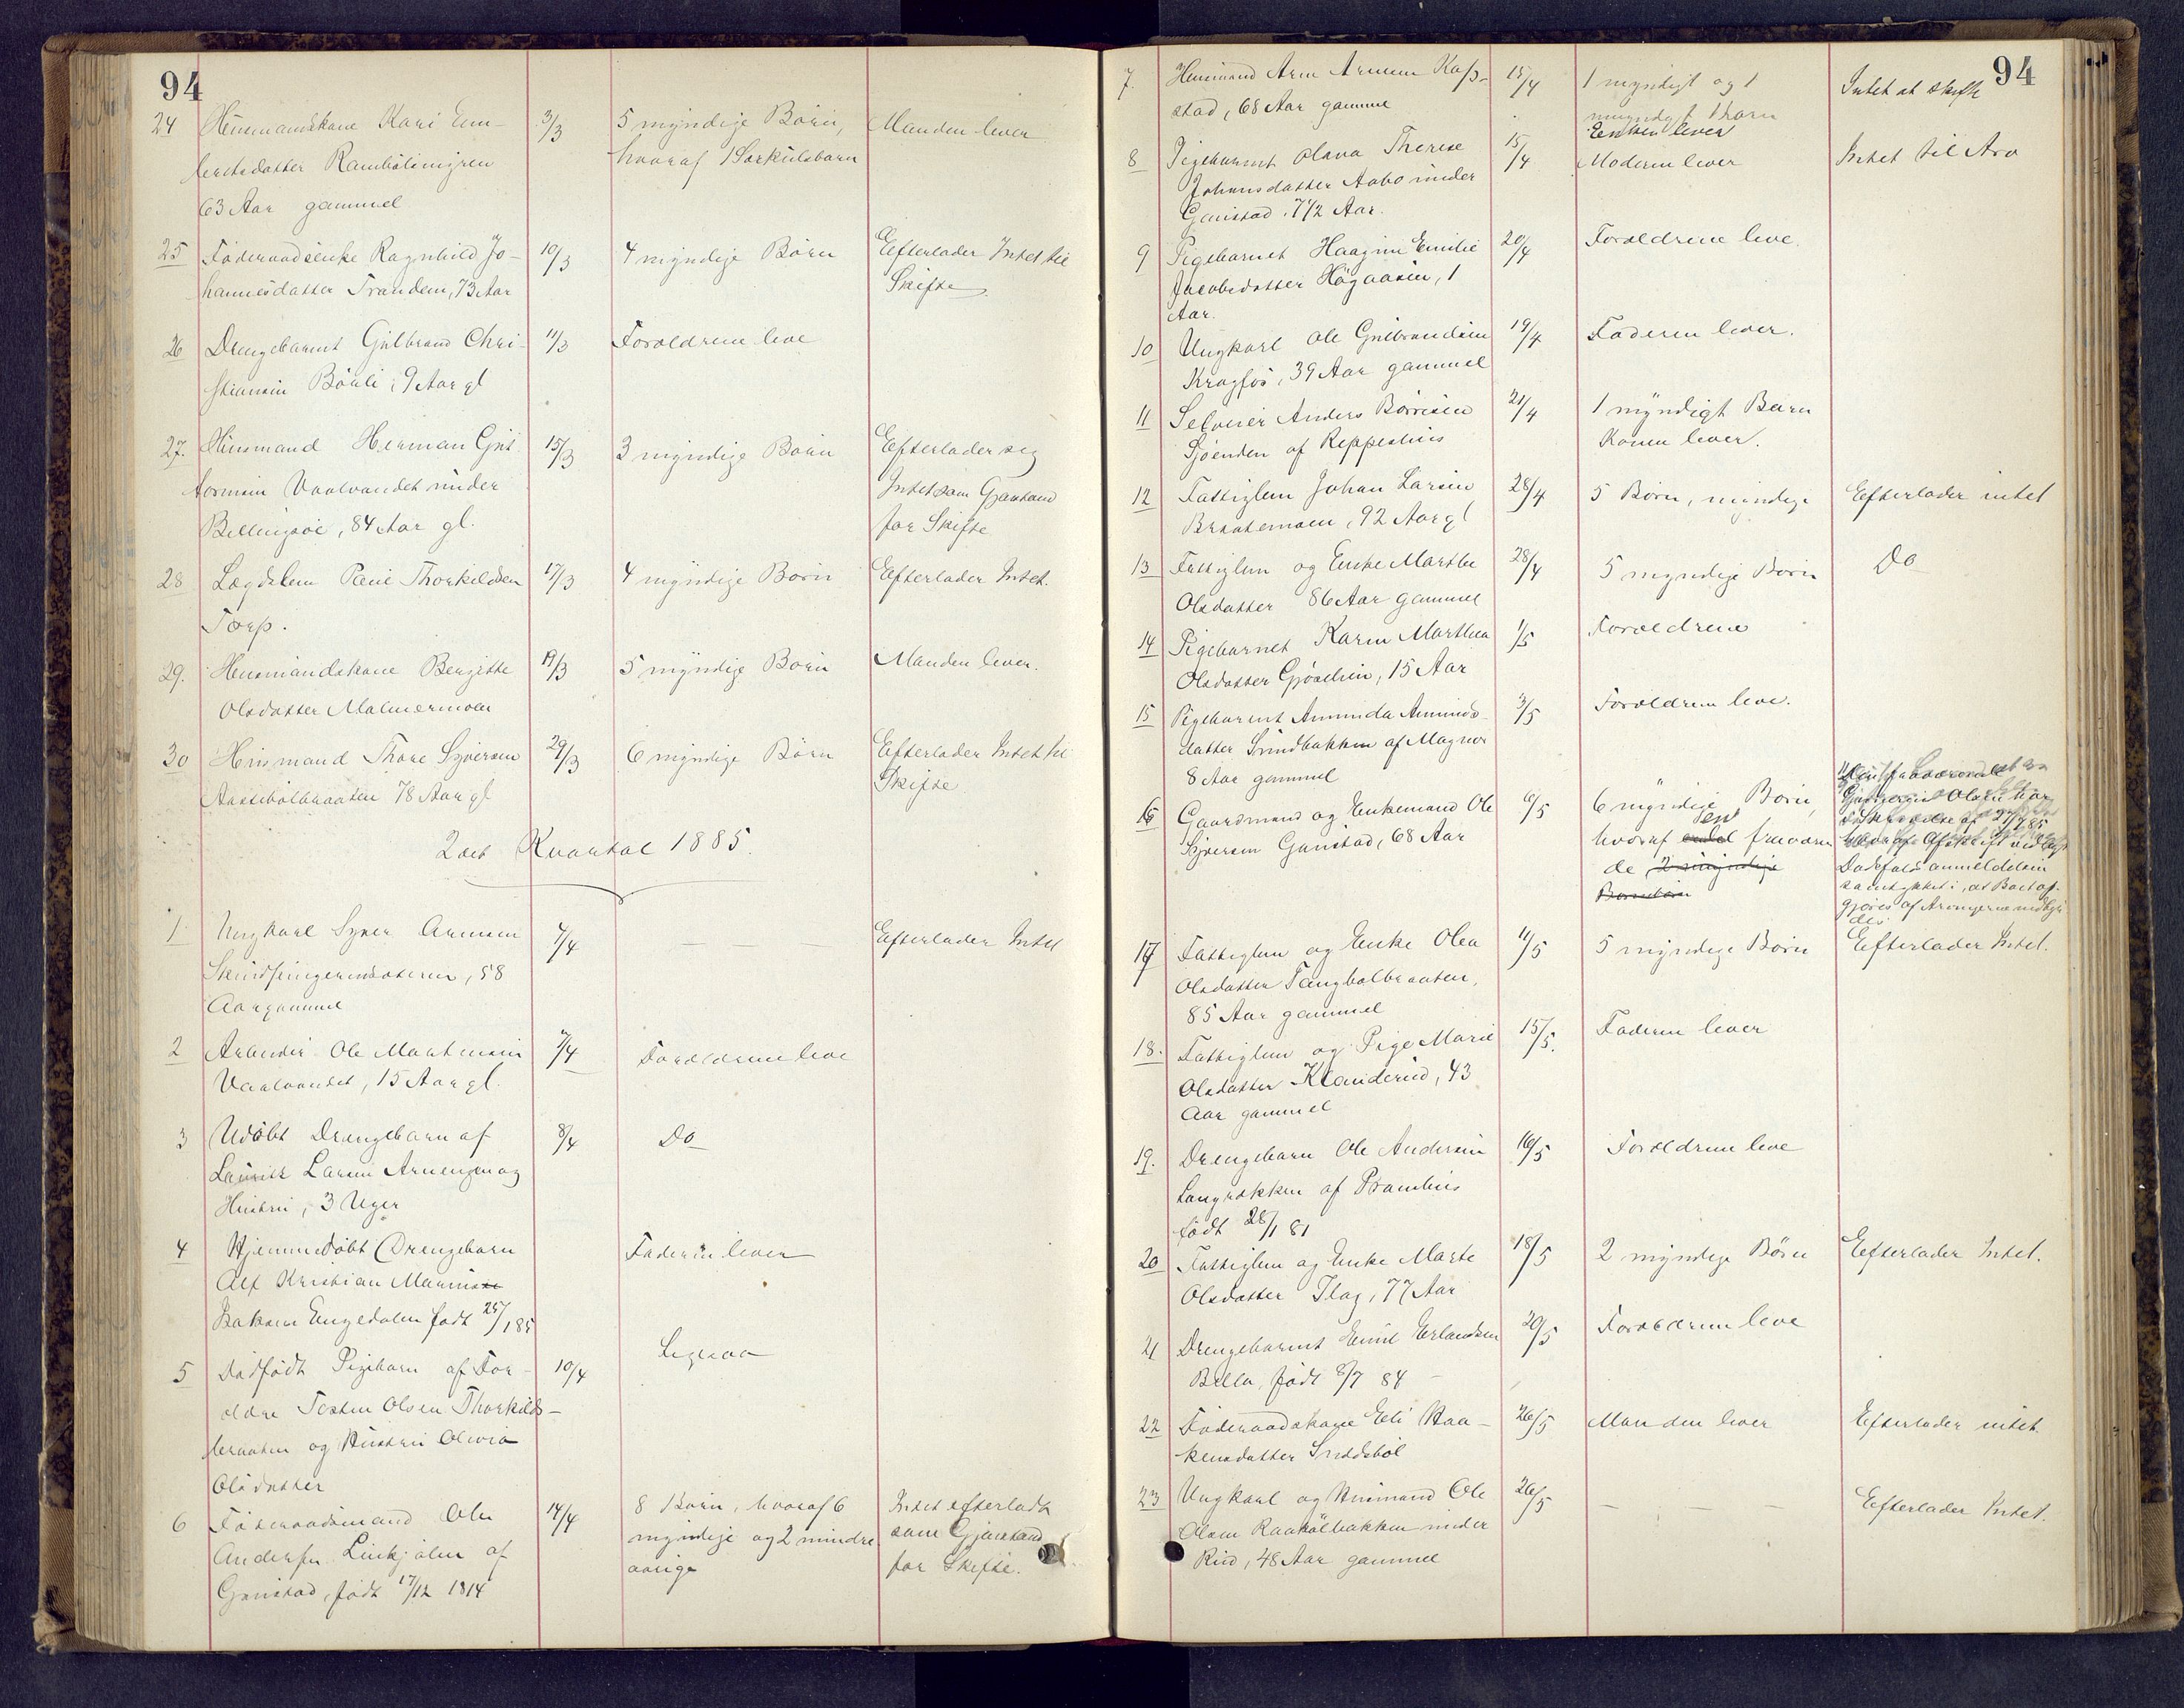 94
24 Husmandskone Kari Em- 3/3 5 myndige Børn, Manden lever
bretsdatter hvoraf 1 Særkulsbarn
63 Aar gammel
25 Føderaadsenke Ragnhild Jo- 10/3 4 myndige Børn Efterlader Intet til
hannesdatter Trandem, 73 Aar Skifte
26 Drengebarnet Gulbrand Chri- 11/3 Forældrene leve
stiansen Bøhli, 9 Aar gl
27. Husmand Herman Gut- 15/3 3 myndige Børn Efterlader sig
tormsen Vaalvandet under Intet som Gjenstand
84 Aar gl. for Skifte
28 Lægdslem Paul Thorkildsen 17/3 4 myndige Børn Efterlader Intet.
Torp.
29. Husmandskone Bergitte 19/3 5 myndige Børn Manden lever.
Olsdatter Malmermoen
30 Husmand Thore Syversen 29/3 6 myndige Børn Efterlader Intet til
78 Aar gl Skifte
2det Kvartal 1885.
1 Ungkarl Syver Arnesen 7/4 — — — Efterlader Intet
58
Aar gammel
2 Arbeider Ole Martinsen 7/4 Forældrene leve
Vaalvandet, 15 Aar gl.
3 Udøbt Drengebarn af 8/4 Do
Lauritz Larsen Arnengen og
Hustru, 3 Uger
4 Hjemmedøbt Drengebarn Faderen lever
Alf Kristian
Engedalen født 25/1 85
5 Dødfødt Pigebarn af For- 10/4 Ligesaa
ældre Torsten Olsen Thorkilds-
braaten og Hustru Olivia
Olsdatter
6 Føderaadsmand Ole 14/4 8 Børn, hvoraf 6 Intet efterladt
Andersen af myndige og 2 mindre- som Gjenstand
Granstad, født 17/12 1814 aarige for Skifte.
94
7. Husmand Arne Arnesen Kaps- 15/4 1 myndigt og 1 Intet at skifte
stad, 68 Aar gammel umyndigt Barn
Enken lever
8 Pigebarnet Olava Therese 15/4 Moderen lever Intet til Arv
Johansdatter Aabo under
7 1/2 Aar.
9 Pigebarnet Haagine Emilie 20/4 Forældrene leve.
Jacobsdatter Høgaasen, 1
Aar.
10 Ungkarl Ole Gulbrandsen 19/4 Faderen lever.
Kragfos, 39 Aar gammel
11 Selveier Anders Børresen 21/4 1 myndigt Barn
Sjøenden af Reppeshus Konen lever.
12 Fattiglem Johan Larsen 28/4 5 Børn, myndige Efterlader intet
Braatemoen, 92 Aar gl
13 Fattiglem og Enke Marthe 28/4 5 myndige Børn Do
Olsdatter 86 Aar gammel
14 Pigebarnet Karen Marthea 1/5 Forældrene
Olsdatter 15 Aar
15 Pigebarnet Amunda Amunds- 3/5 Forældrene leve.
datter af Magnor
8 Aar gammel
16 Gaardmand og Enkemand Ole 6/5 6 myndige Børn,
Syversen Granstad, 68 Aar hvoraf en fraværen-
de 2 myndige
Børnebørn
Olsen har
af 21/7 85
Dødsfaldsanmeldelsen
samtykket i, at Boet op-
gjøres af Arvingerne
17 Fattiglem og Enke Olea 11/5 5 myndige Børn Efterlader Intet.
Olsdatter Tangbølbraaten,
85 Aar gammel
18. Fattiglem og Pige Marie 15/5. Faderen lever
Olsdatter Klanderud, 43
Aar gammel
19. Drengebarn Ole Andersen 16/5 Forældrene leve
Langbakken af Pramhus
født 28/1 81
20 Fattiglem og Enke Marte 18/5 2 myndige Børn Efterlader Intet.
Olsdatter Flag, 77 Aar
21 Drengebarnet Emil Erlandsen 20/5 Forældrene leve
Bella, født 8/7 84
22 Føderaadskone Eli Haa- 26/5 Manden lever Efterlader intet.
kensdatter Snødsbøl
23 Ungkarl og Husmand Ole 26/5 — — — Efterlader Intet.
Olsen under
Rud, 48 Aar gammel